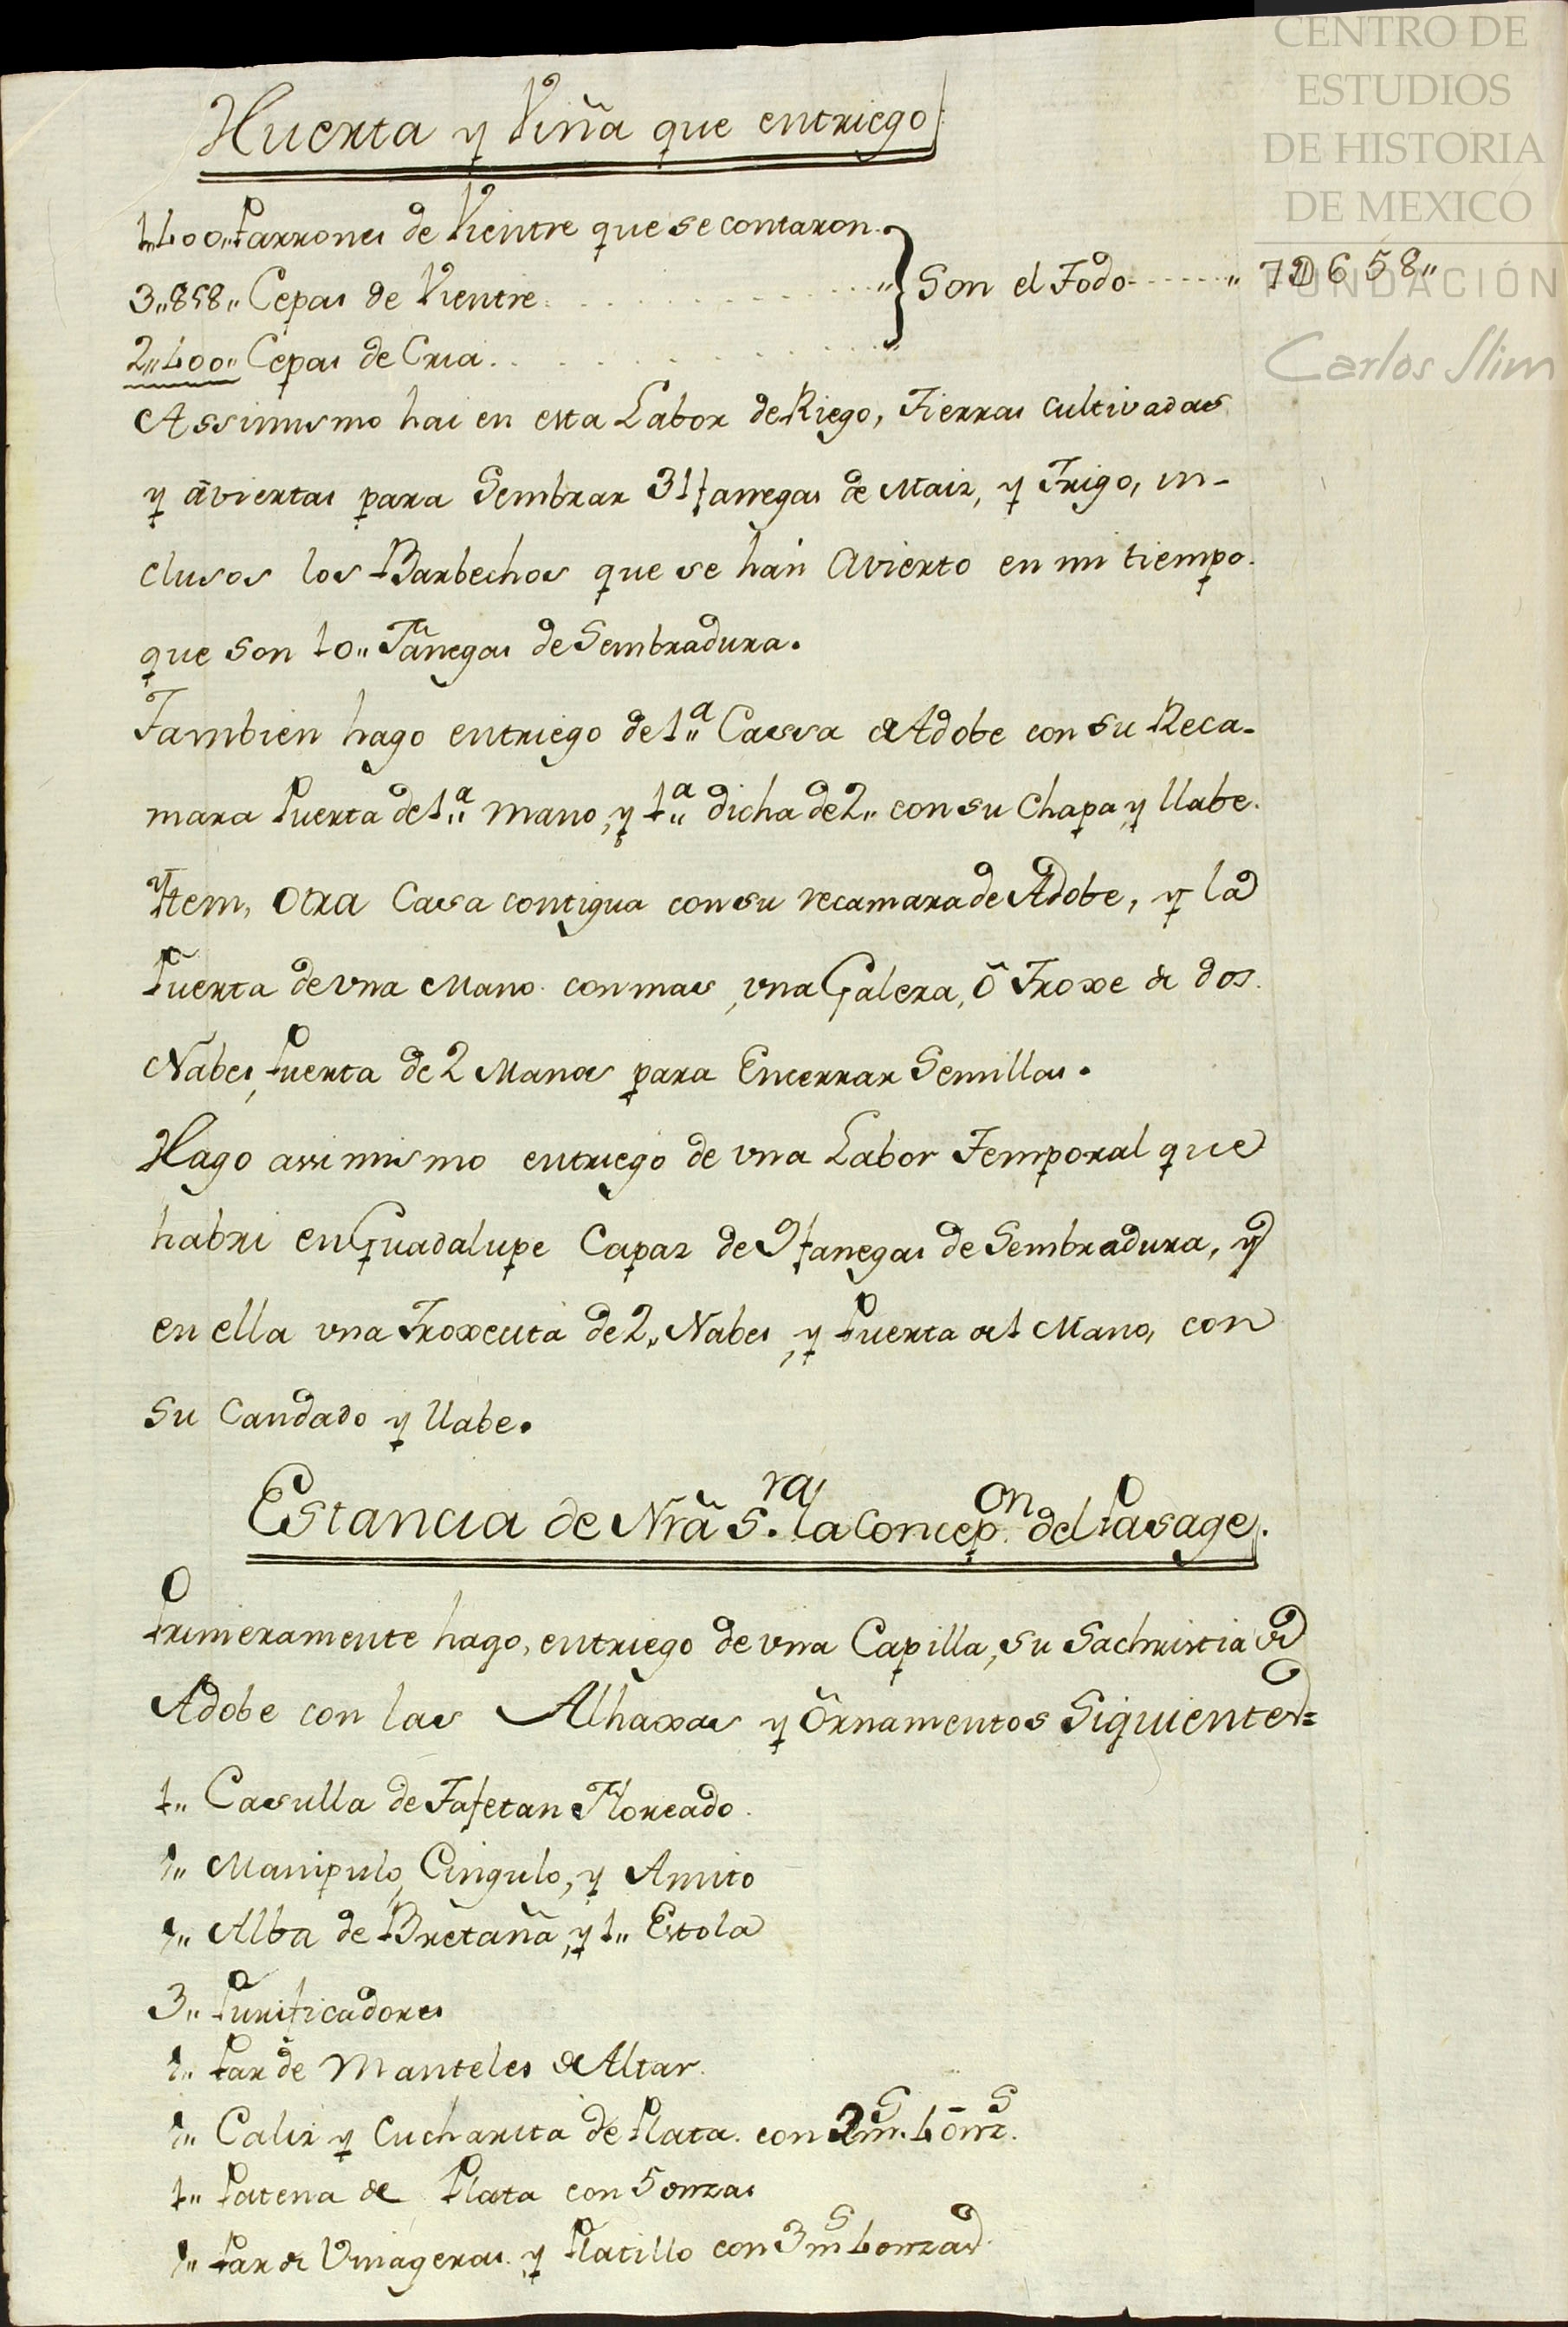 CENTRO DE
ESTUDIOS
DE HISTORIA
DE MEXICO
FUNDACIÓN
Carlos Slim
Huerta y Viña que entriego
1„400„ Parrones de Vientre que se contaron
3„858„ Cepas de Vientre
2„400„ Cepas de Cria
Son el Todo „ 7„658„
Assimismo hai en esta Labor de Riego, Tierras cultivadas
y aviertas para Sembrar 31 fanegas de Maiz, y Trigo, in-
clusos los Barbechos que se hán avierto en mi tiempo
que son 10„ Fanegas de Sembradura.
Tambien hago entriego de 1„ª Cassa de Adobe con su Reca-
mara Puerta de 1„ª mano, y 1„ª dicha de 2„ con su Chapa, y llabe.
Ytem, otra Casa contigua con su recamara de Adobe, y la
Puerta de vna Mano con mas, vna Galera, ô Troxe de dos
Nabes, Puerta de 2 Manos para Encerrar Semillas.
Hago assimismo entriego de vna Labor Temporal que
habri en Guadalupe Capaz de 9 fanegas de Sembradura, y
en ella vna Troxecita de 2„ Nabes, y Puerta de 1 Mano, con
su Candado y llabe.
Estancia de Nrã S.ra la Concep.on del Pasage.
Primeramente hago, entriego de vna Capilla, su Sachristia de
Adobe con las Alhaxas y Ornamentos Siguientes=
1„ Casulla de Tafetan Floreado.
1„ Manipulo, Cingulo, y Amito
1„ Alba de Bretaña, y 1„ Estola
3„ Purificadores
1„ Par de Manteles de Altar.
1„ Caliz y Cucharita de Plata con 2 m.s 4 onz.s
1„ Patena de Plata con 5 onzas
1„ Par de Vinageras y Platillo con 3 m.s 4 onzas